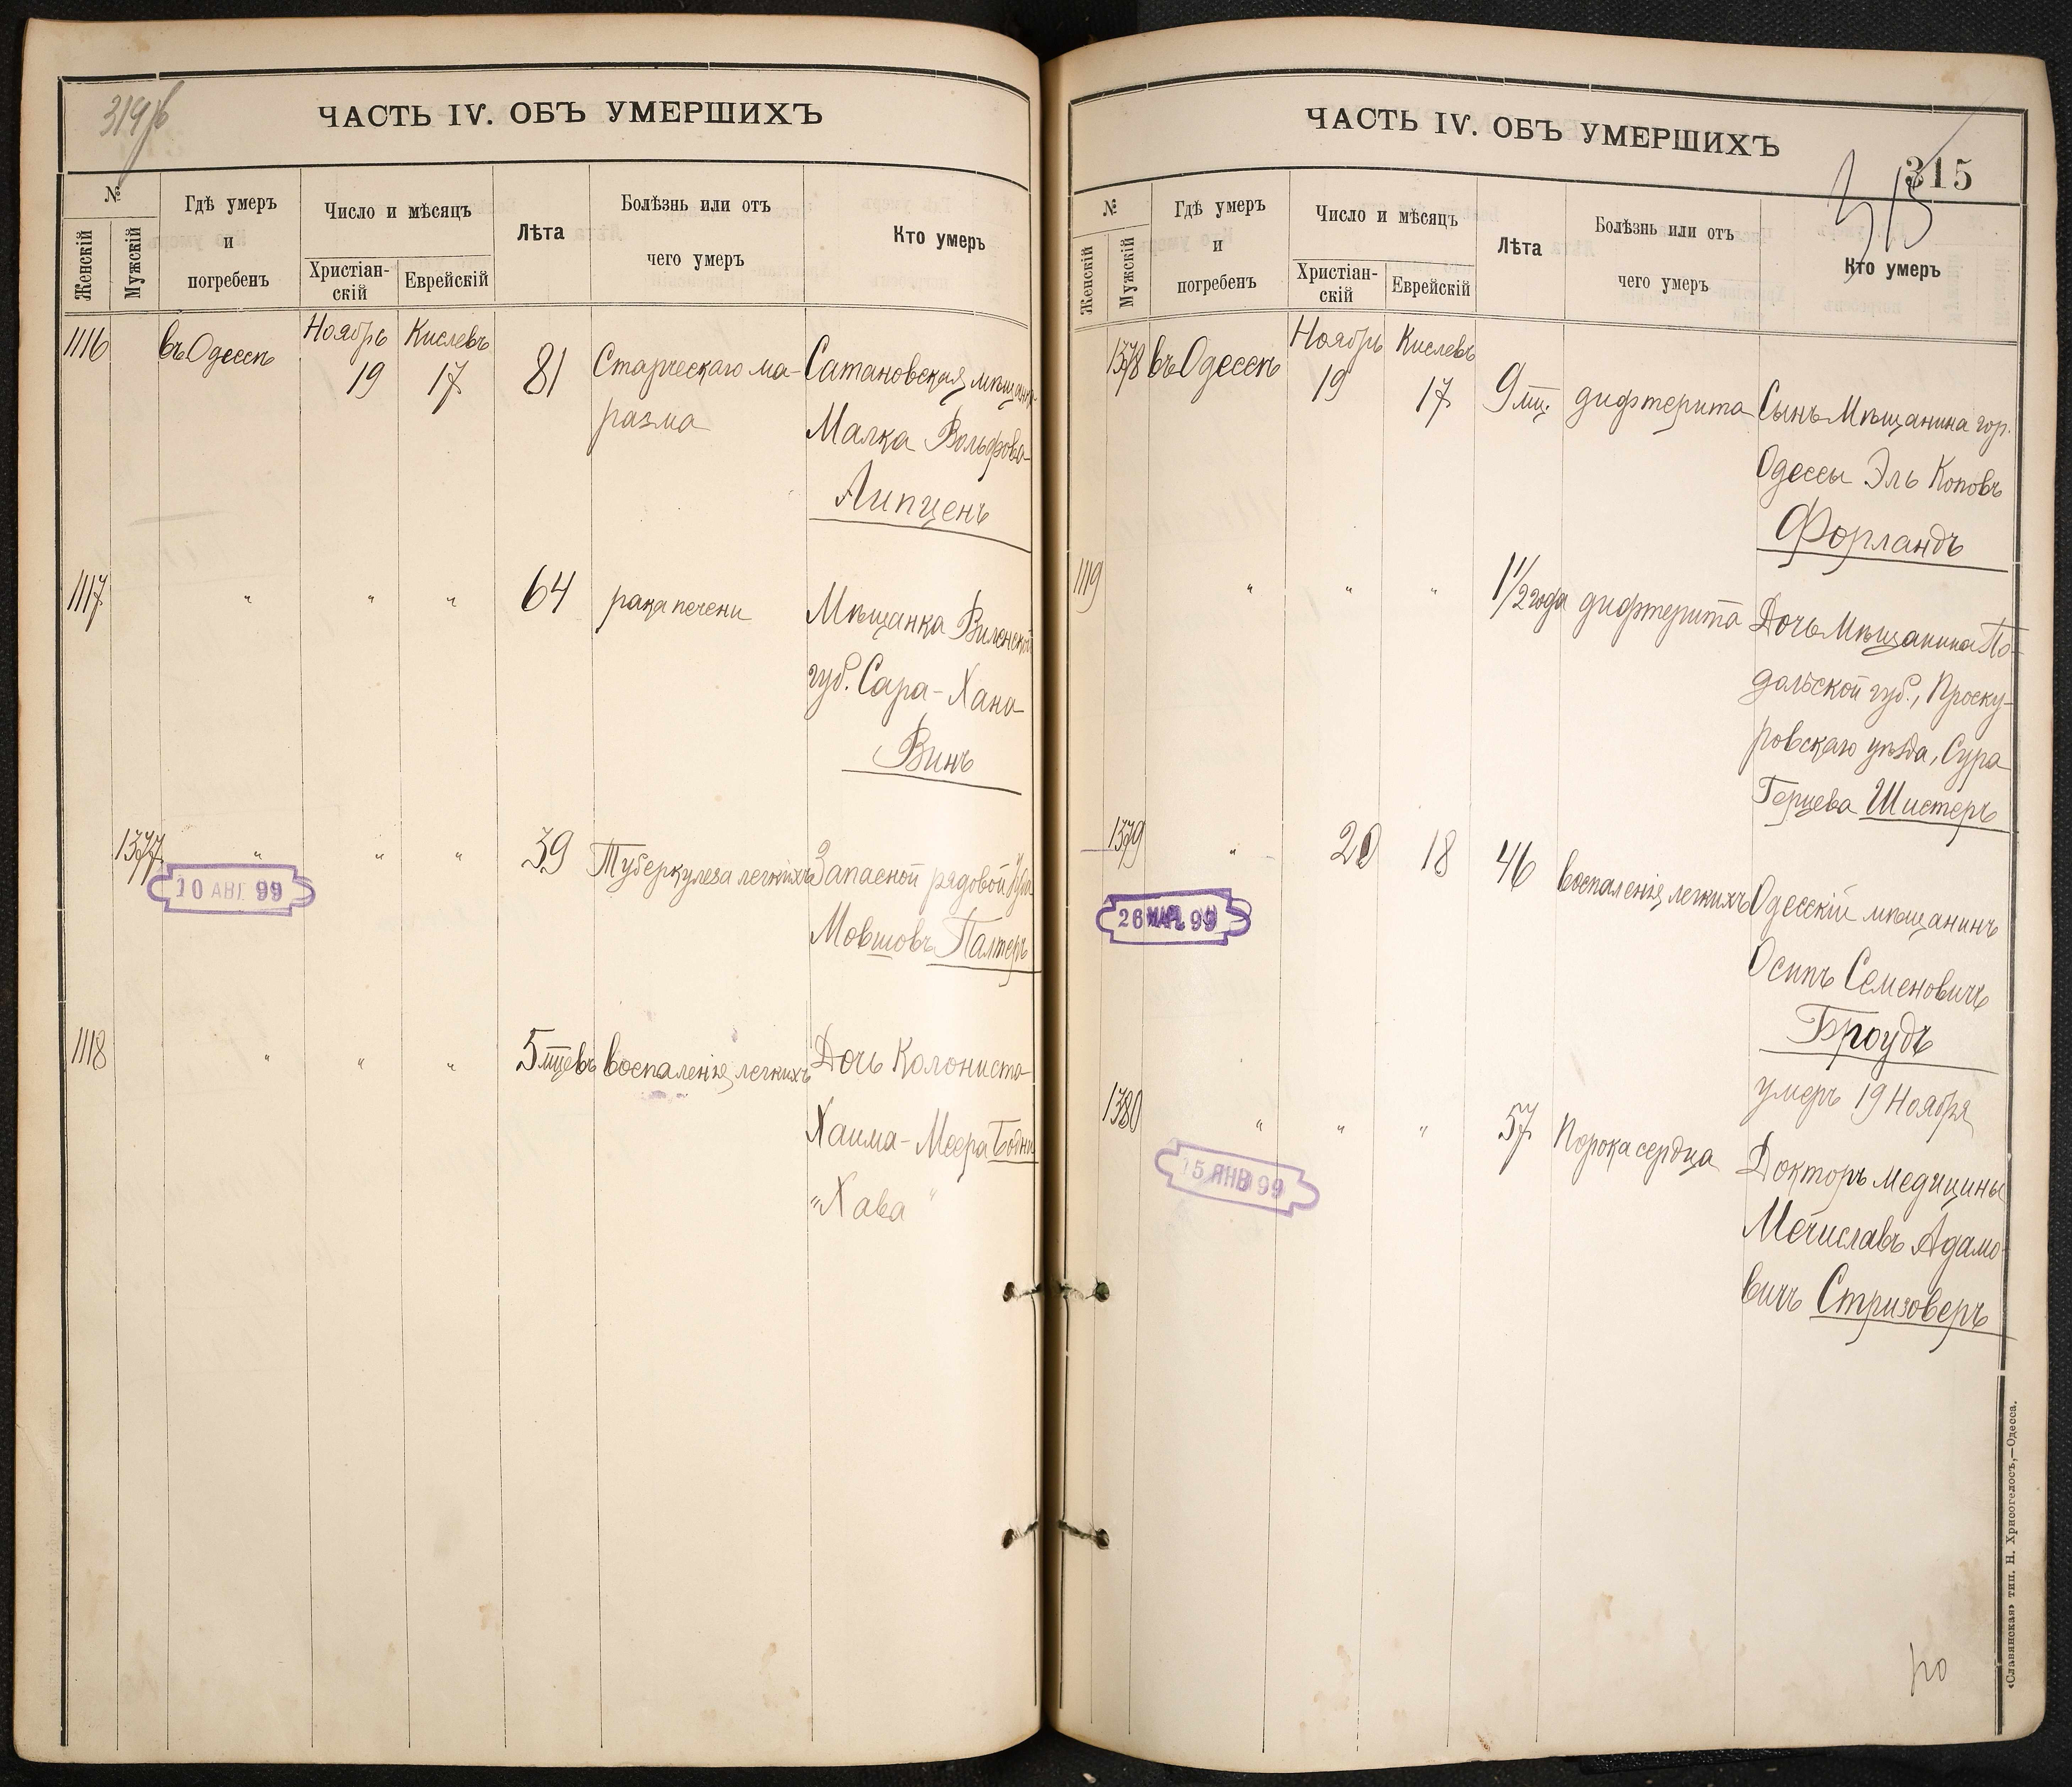 319/б
ЧАСТЬ IV. ОБЪ УМЕРШИХЪ
№
Женскій
Мужскій
Гдѣ умеръ
и
погребенъ
Число и мѣсяцъ
Христіан-
скій
Еврейскій
Лѣта
Болѣзнь или отъ
чего умеръ
Кто умеръ
1116 въ Одессѣ Ноябрь 19 Кислевъ 17 81 Старческаго ма- Сатановская мѣщанка
разма Малка Вольфова
Липценъ
1117 " " " 64 рака печени Мѣщанка Виленской
губ. Сара-Хана
Винъ
1377 " " " 39 Туберкулеза легкихъ Запасной рядовой
10 АВГ 99
Мовшовъ Палтеръ
1118 " " " 5 мцевъ воспаленія легкихъ Дочь Колониста
Хаима-Меера Бодни
"Хава"
ЧАСТЬ IV. ОБЪ УМЕРШИХЪ
315
315
№
Женскій
Мужскій
Гдѣ умеръ
и
погребенъ
Число и мѣсяцъ
Христіан-
скій
Еврейскій
Лѣта
Болѣзнь или отъ
чего умеръ
Кто умеръ
1378 въ Одессѣ Ноябрь 19 Кислевъ 17 9 мц. дифтерита Сынъ Мѣщанина гор.
Одессы Эль Коповъ
Форландъ
1119 " " " 1 1/2 года дифтерита Дочь Мѣщанина По-
дольской губ., Проску-
ровскаго уѣзда, Сура
Герцева Шистеръ
1379 " 20 18 46 воспаленія легкихъ Одесскій мѣщанинъ
26 99
Осипъ Семеновичъ
Броудъ
умеръ 19 Ноября
1380 " " " 57 Порока сердца Докторъ медицины
15 ЯНВ 99
Мечиславъ Адамо-
вичъ Стризоверъ
«Славянская» тип. Н. Хрисогелосъ,—Одесса.